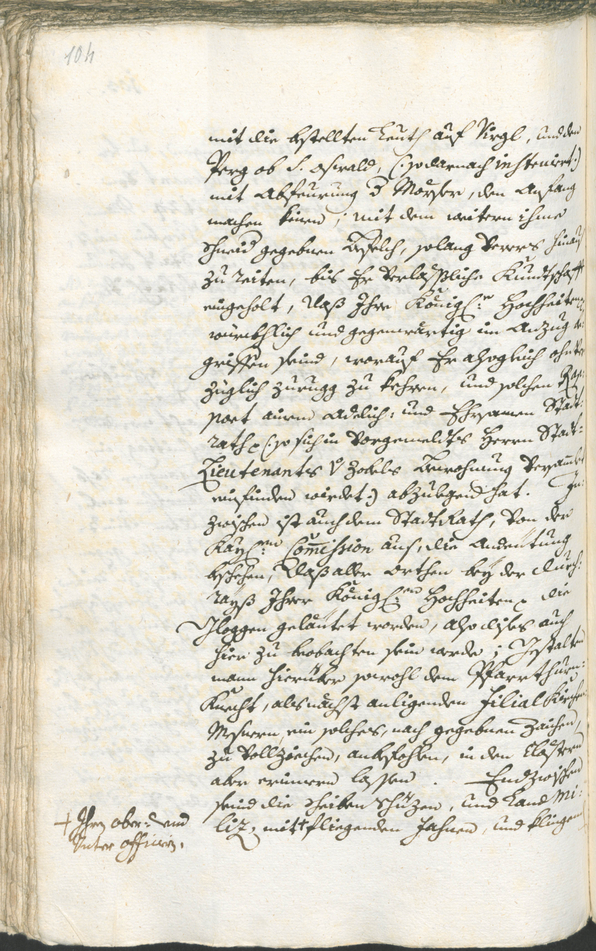 104
mit die bestellten Leuth auf Virgl, und den
Perg ob S. Oswald, (: so darnach
mit Abfeurung 3 Mörser, den Anfang
machen könen; mit dem weitern ihme
Schneid gegebnen Befelch, solang hinaus
zu reiten, bis Er verlässliche Kundtschafft
eingeholt, dass Ihre Königl:n Hochheiten
würckhlich und gegenwärtig im Anzug be-
griffen seind, worauf Er alsogleich ohnver-
züglich zurugg zu kehren, und solchen Rap-
port einem Adelich: und Ehrsamen Stadt-
rath (: so sich in vorgemeldts Herrn Stadt-
Lieutenants v Zobels Bewohnung versamblet
einfinden würdet :) abzulegen hat. In-
zwischen ist auch dem StadtRath, von der
Kayl:n Commission aus, die Andeutung
beschehen, dass aller Orthen bey der Durch-
rayß Ihrer Königl:n Hochheiten die
Gloggen geläutet worden, also dises auch
hier zu beobachten sein werde; Gestalten
mann hierüber sowohl dem Pfarr Thurn-
Knecht, als nächst anligenden Filial Kürchen
Mesnern, ein solches, nach gegebnen Zaichen,
zu vollziechen, anbefohlen, in den Clöstern
aber erinnern lassen. Entzwischen
seind die Scheiben Schüzen, und Land Mi-
liz, mit + fliegenden Fahnen, und klingen
+ Ihren ober- und
Unter officiern.